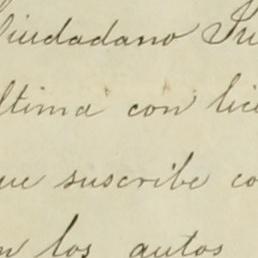 Ciudadano Ju
última con lic
que suscribe co
en los autos